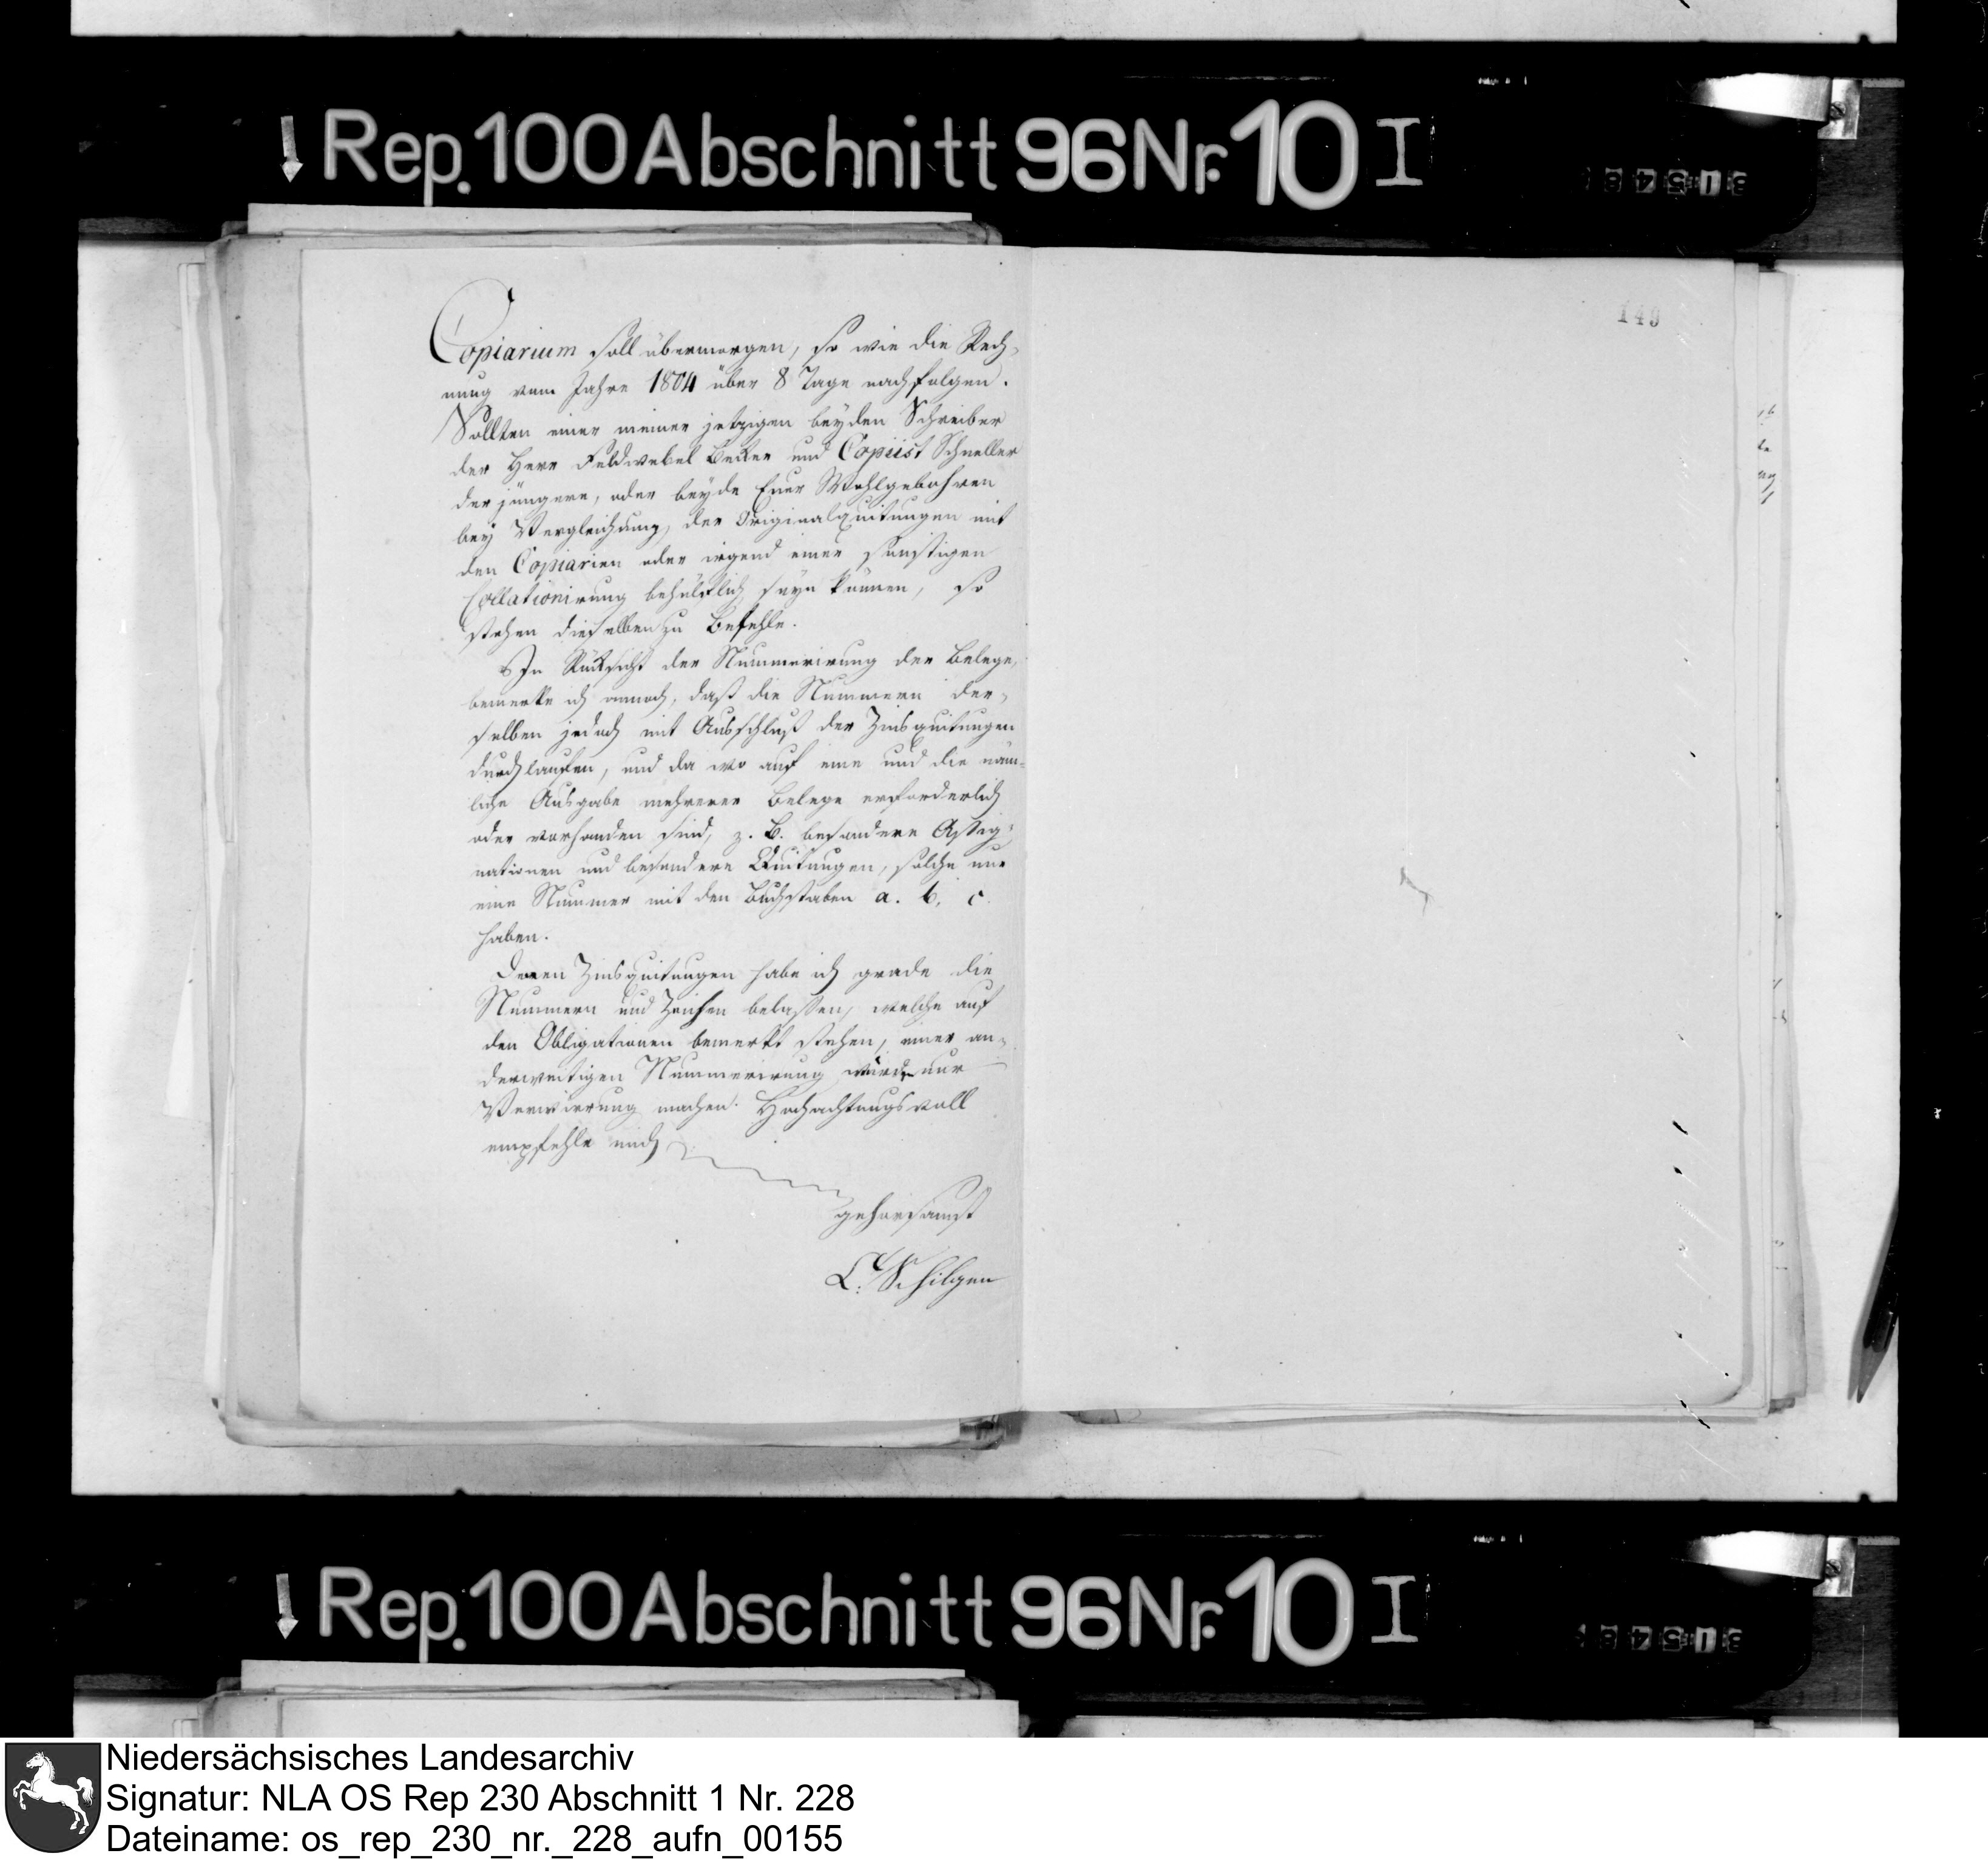 Rep. 100 Abschnitt 96 Nr. 10 I
149
Copiarium soll übermorgen, so wie die Rech-
nung vom Jahre 1804 über 8 Tage nachfolgen.
Sollten einer meiner jetzigen beyden Schreiber
der Herr Feldwebel Becker und Copiist Schneller
der jüngere, oder beyde Euer Wohlgebohren
bey Vergleichung, der Originalquitungen mit
den Copiarien oder irgend einer sonstigen
Collationirung behülflich seyn können, so
stehen dieselben zu Befehle.
In Rücksicht der Nummerirung der Belege,
bemerke ich annoch, daß die Nummern der-
selben jedoch mit Ausschluß der Zinsquitungen
durchlaufen, und da wo auf eine und die näm-
liche Ausgabe mehrere Belege erforderlich
oder vorhanden sind, z. B. besondere Assig-
nationen und besondere Quitungen, solche nur
eine Nummer mit den Buchstaben a. b. c.
haben.
Denen Zinsquitungen habe ich grade die
Nummern und Zeichen belassen, welche auf
den Obligationen bemerkt stehen, einer an-
derweitigen Nummerirung würde nur
Verwirrung machen. Hochachtungsvoll
empfehle mich
gehorsamst
Schilgen
Rep. 100 Abschnitt 96 Nr. 10 I
Niedersächsisches Landesarchiv
Signatur: NLA OS Rep 230 Abschnitt 1 Nr. 228
Dateiname: os_rep_230_nr._228_aufn_00155